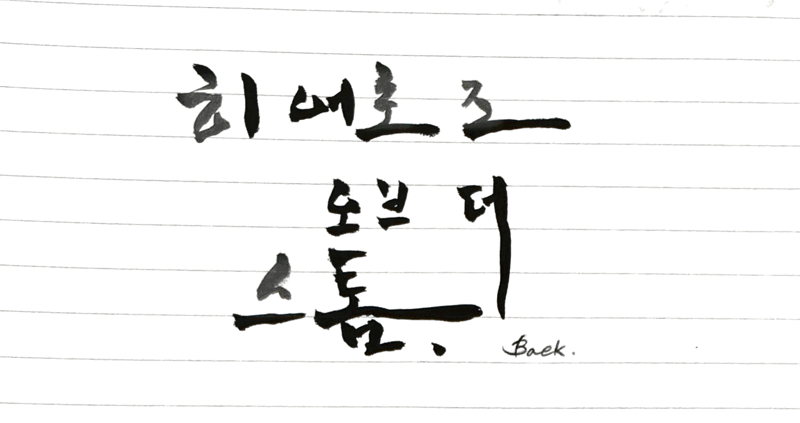 히어로즈
오브 더
스톰.
Baek.